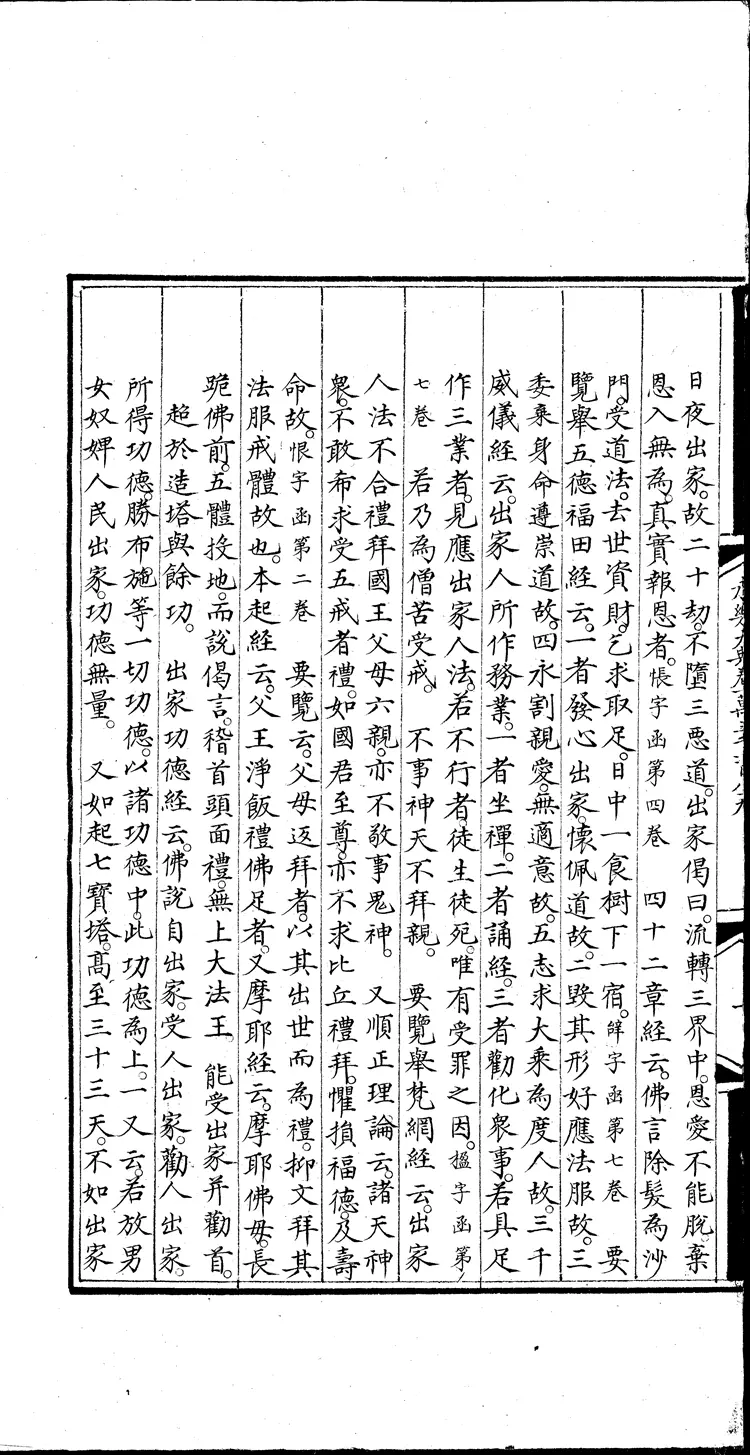 日夜出家。故二十劫。不墮三惡道。出家偈曰。流轉三界中。恩愛不能脫。棄
恩入無為。真實報恩者。悵字函第四卷 四十二章經云。佛言除髮為沙
門。受道法。去世資財。乞求取足。日中一食。樹下一宿。鮮字函第七卷 要
覽舉五德福田經云。一者發心出家。懷佩道故。二毀其形好應法服故。三
委棄身命遵崇道故。四永割親愛。無適意故。五志求大乘為度人故。三千
威儀經云。出家人所作務業。一者坐禪。二者誦經。三者勸化衆事。若具足
作三業者。見應出家人法。若不行者。徒生徒死。唯有受罪之因。楹字函第
七卷 若乃為僧苦受戒。 不事神天不拜親。 要覽舉梵網經云。出家
人法不合禮拜國王父母六親。亦不敬事鬼神。 又順正理論云。諸天神
衆。不敢希求受五戒者禮。如國君至尊。亦不求比丘禮拜。懼損福德。及壽
命故。恨字函第二卷 要覽云。父母返拜者。以其出世而為禮。抑文拜其
法服戒體故也。本起經云。父王淨飯禮佛足者。又摩耶經云。摩耶佛母。長
跪佛前。五體投地。而說偈言。稽首頭面禮。無上大法王。 能受出家并勸首。
超於造塔與餘功。 出家功德經云。佛說自出家。受人出家。勸人出家。
所得功德。勝布施等一切功德。以諸功德中。此功德為上。一又云。若放男
女奴婢人民出家。功德無量。 又如起七寶塔。高至三十三天。不如出家